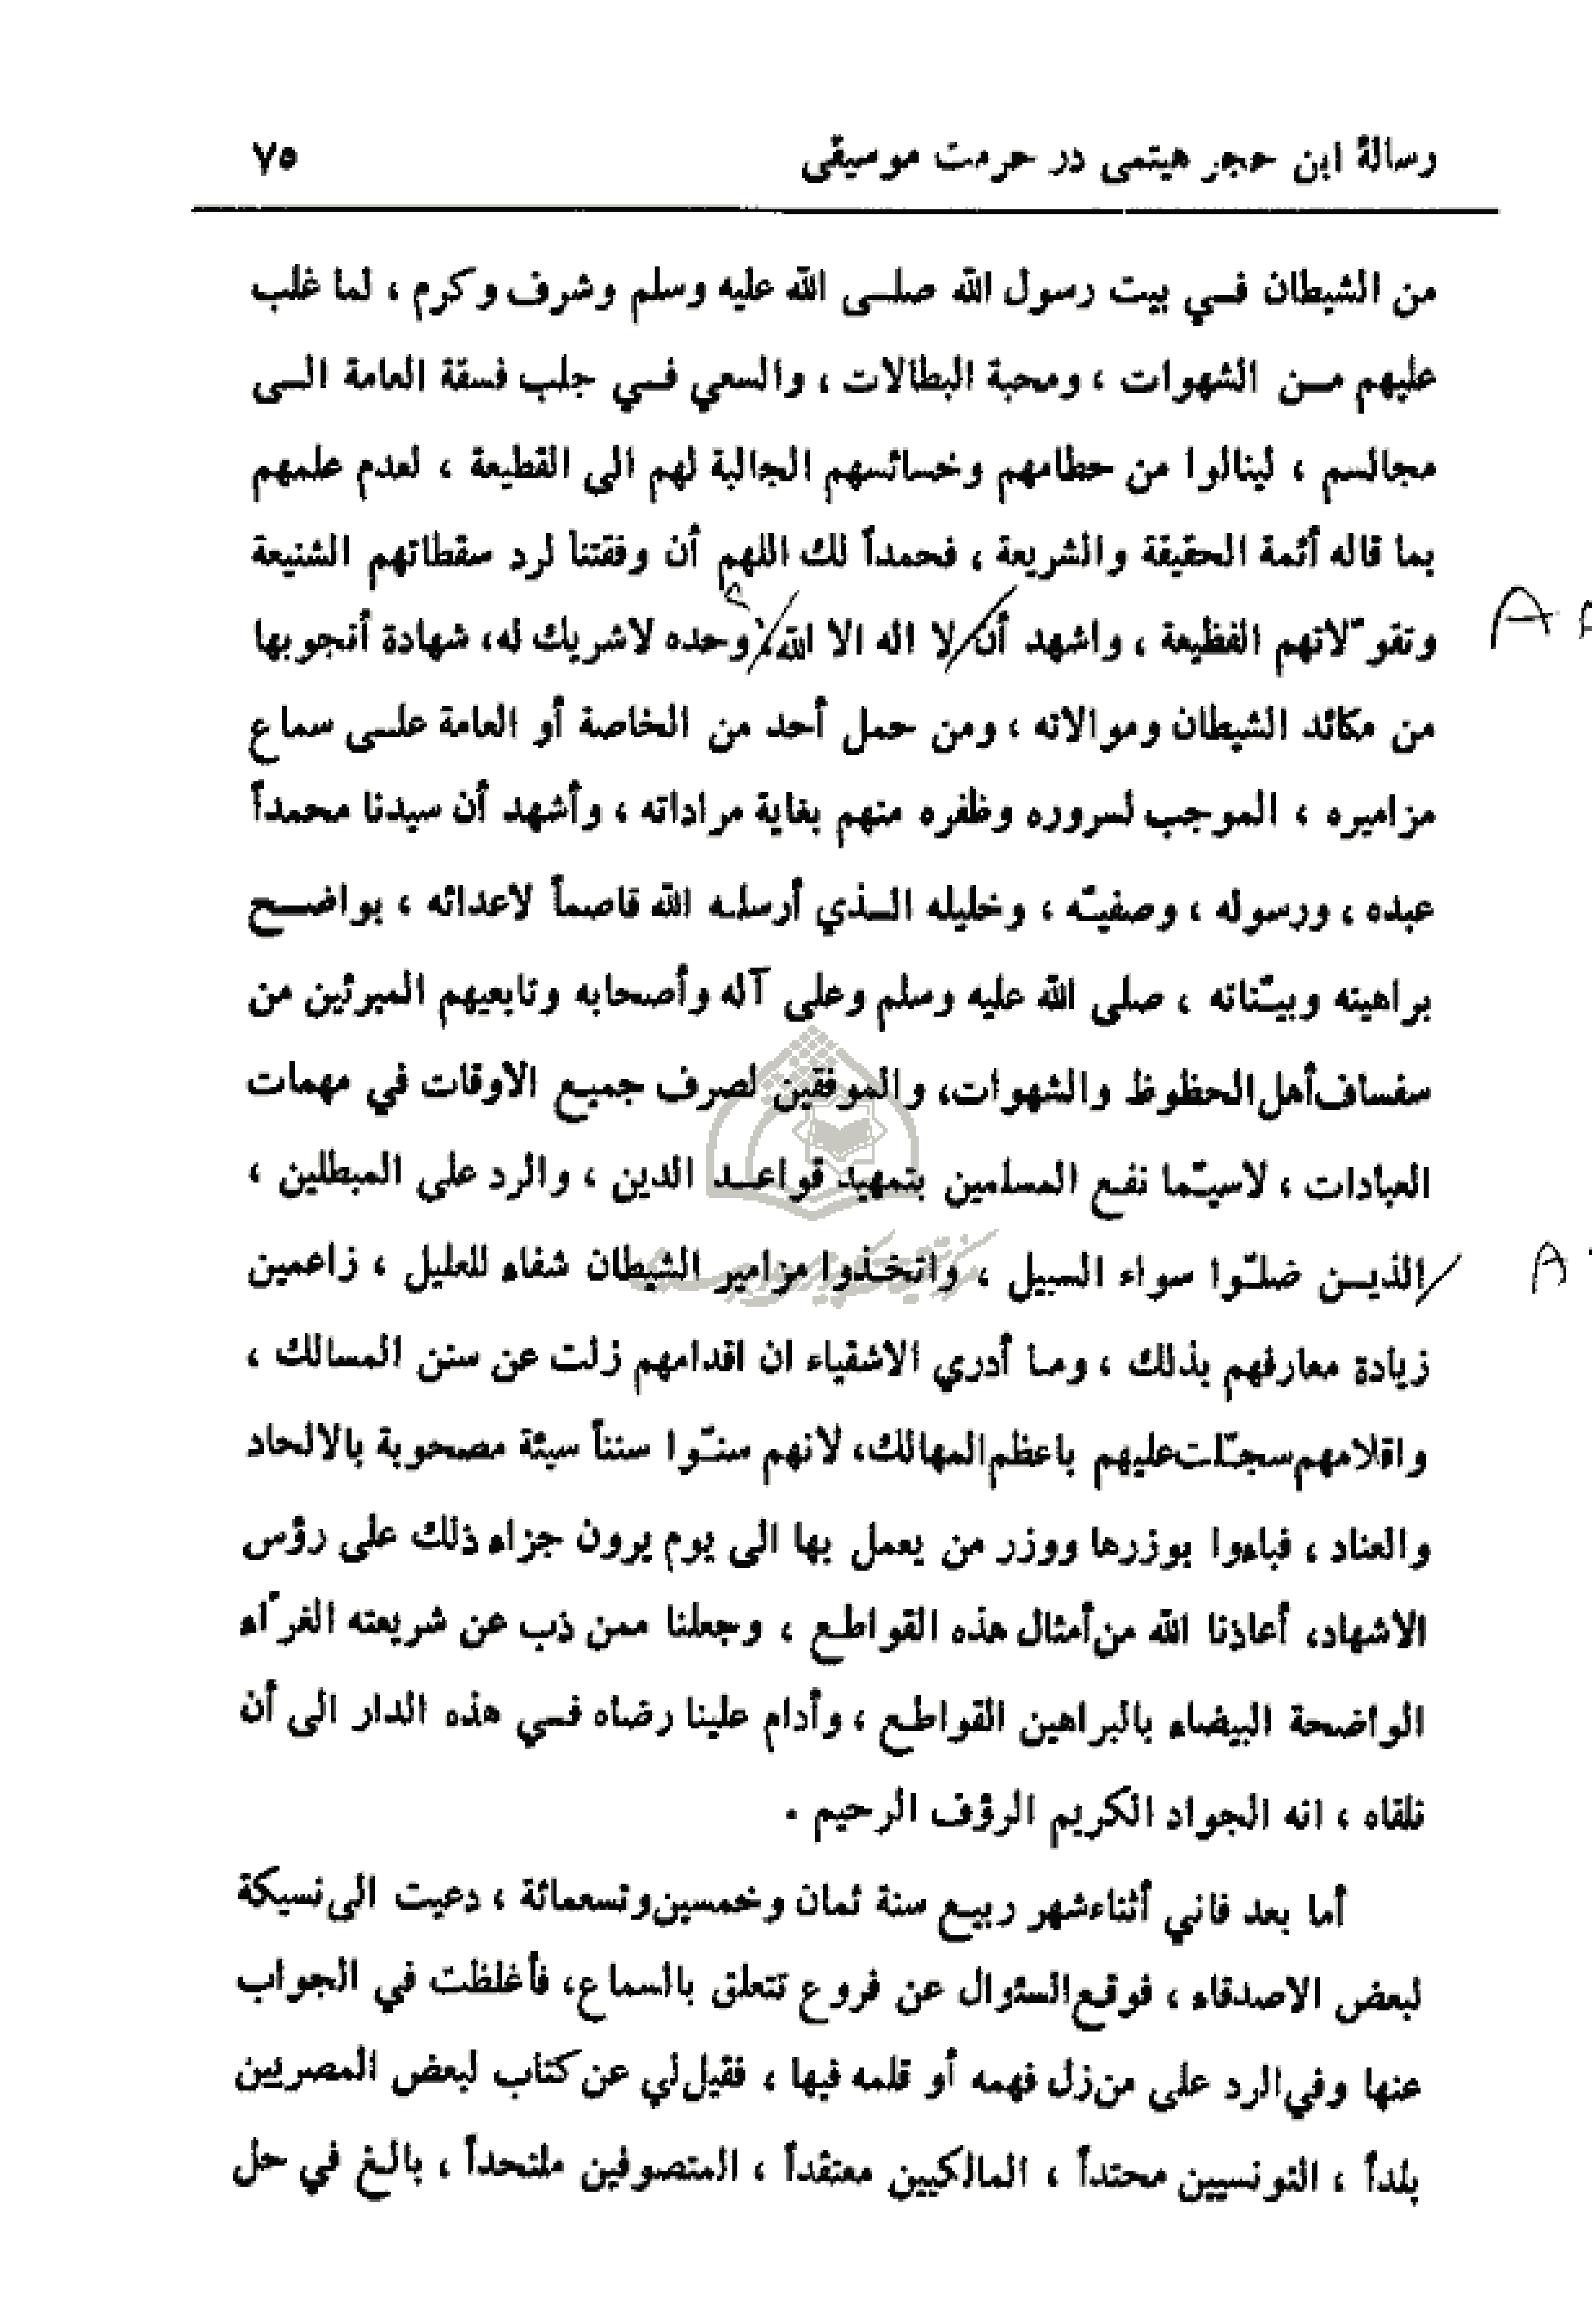 رسالهٔ ابن حجر هیتمی در حرمت موسیقی ۷۵
من الشيطان فـــي بيت رسول الله صلـــى الله عليه وسلم وشرف وكرم ، لما غلب
عليهم مـــن الشهوات ، ومحبة البطالات ، والسعي فـــي جلب فسقة العامة الـــى
مجالسم ، لينالوا من حطامهم وخسائسهم الجالبة لهم الى القطيعة ، لعدم علمهم
بما قاله أئمة الحقيقة والشريعة ، فحمداً لك اللهم أن وفقتنا لرد سقطاتهم الشنيعة
وتقوّلاتهم الفظيعة ، واشهد أن لا اله الا الله، وحده لاشريك له، شهادة أنجو بها
من مكائد الشيطان وموالاته ، ومن حمل أحد من الخاصة أو العامة علـــى سماع
مزاميره ، الموجب لسروره وظفره منهم بغاية مراداته ، وأشهد أن سيدنا محمداً
عبده ، ورسوله ، وصفيّه ، وخليله الـــذي أرسله الله قاصماً لاعدائه ، بواضـــح
براهينه وبيّناته ، صلى الله عليه وسلم وعلى آله وأصحابه وتابعيهم المبرئين من
سفساف أهل الحظوظ والشهوات، والموفقين لصرف جميع الاوقات في مهمات
العبادات ، لاسيّما نفع المسلمين بتمهيد قواعـــد الدين ، والرد على المبطلين ،
الذيـــن ضلّوا سواء السبيل ، واتخـذوا مزامير الشيطان شفاء للعليل ، زاعمين
زيادة معارفهم بذلك ، ومـا أدري الاشقياء ان اقدامهم زلت عن سنن المسالك ،
واقلامهم سجّلت عليهم باعظم المهالك، لانهم سنّوا سنناً سيئة مصحوبة بالالحاد
والعناد ، فباءوا بوزرها ووزر من يعمل بها الى يوم يرون جزاء ذلك على رؤس
الاشهاد، أعاذنا الله من أمثال هذه القواطع ، وجعلنا ممن ذب عن شريعته الغرّاء
الواضحة البيضاء بالبراهين القواطع ، وأدام علينا رضاه فـــي هذه الدار الى أن
نلقاه ، انه الجواد الكريم الرؤف الرحيم .
أما بعد فاني أثناء شهر ربيع سنة ثمان وخمسين وتسعمائة ، دعيت الى نسيكة
لبعض الاصدقاء ، فوقع السئوال عن فروع تتعلق بالسماع، فأغلظت في الجواب
عنها وفي الرد على من زل فهمه أو قلمه فيها ، فقيل لي عن كتاب لبعض المصريين
بلداً ، التونسيين محتداً ، المالكيين معتقداً ، المتصوفين ملتحداً ، بالغ في حل